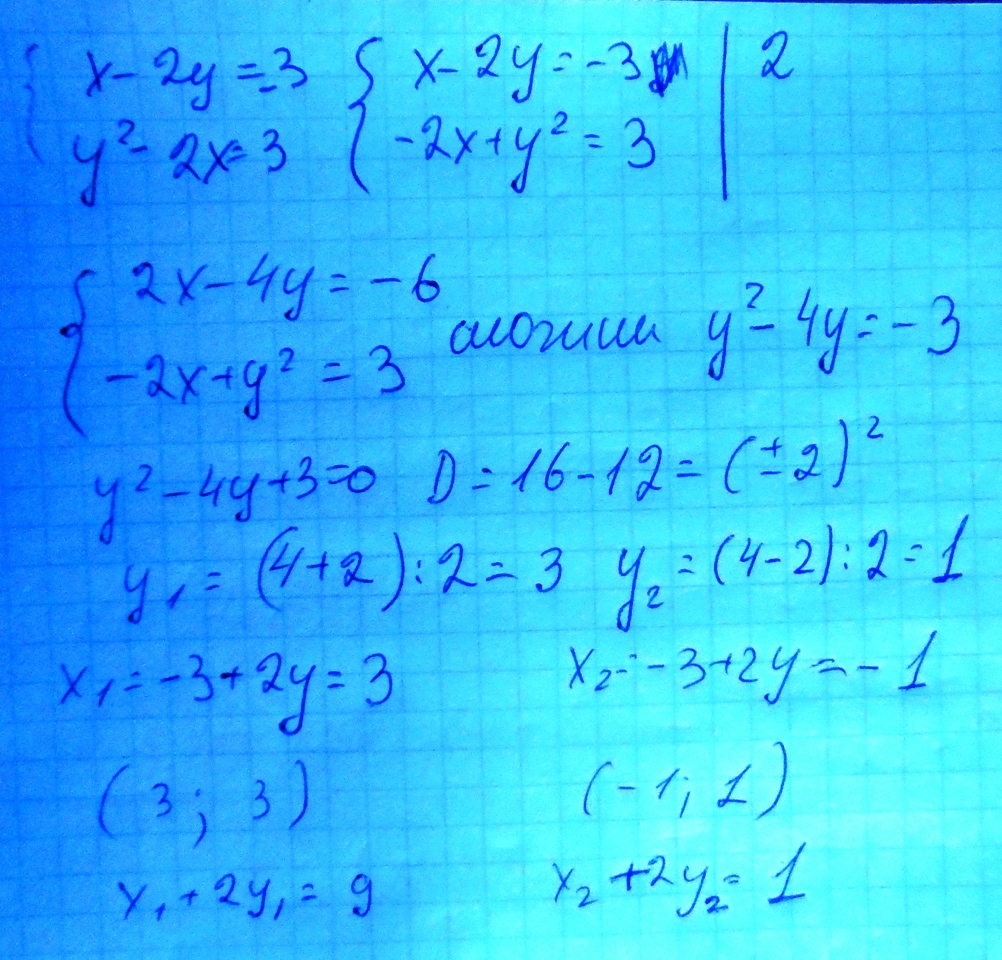 { x - 2y = -3 { x - 2y = -3 | 2
y² - 2x = 3 -2x + y² = 3
{ 2x - 4y = -6
-2x + y² = 3 сложим y² - 4y = -3
y² - 4y + 3 = 0 D = 16 - 12 = (±2)²
y₁ = (4+2) : 2 = 3 y₂ = (4-2) : 2 = 1
x₁ = -3 + 2y = 3 x₂ = -3 + 2y = -1
(3; 3) (-1; 1)
x₁ + 2y₁ = 9 x₂ + 2y₂ = 1